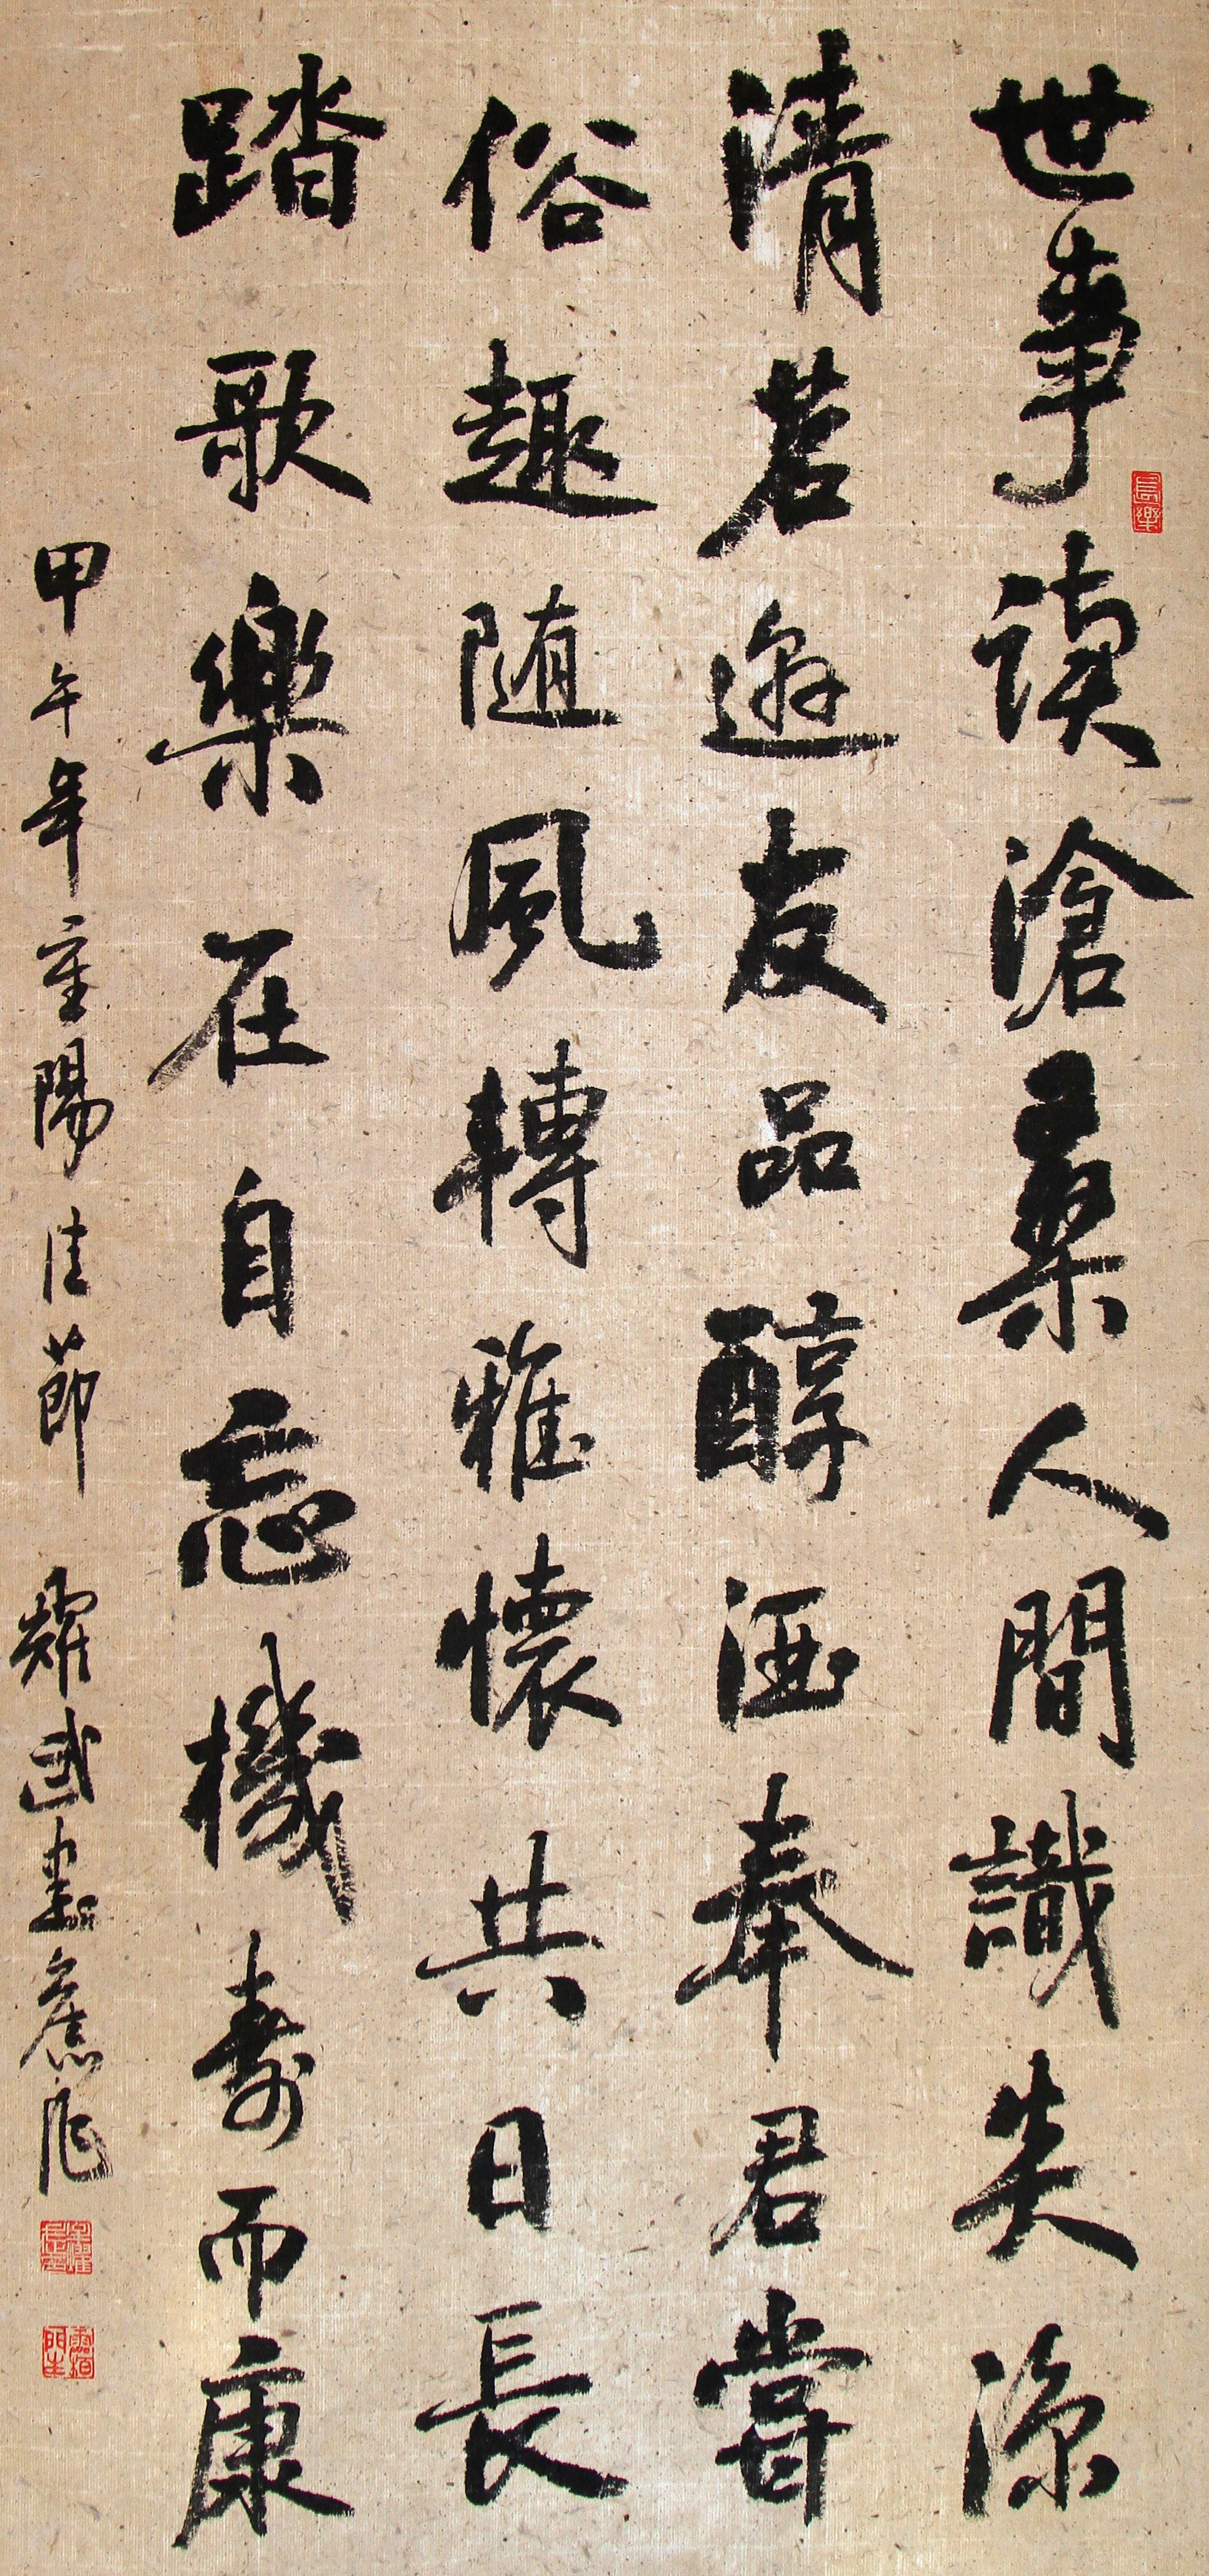 世事读滄桑人間識炎涼
清茗邀友品醇酒奉君嘗
俗趣随風轉雅懷共日長
踏歌樂在自忘機壽而康
甲午年重陽佳節 耀國書舊作
長樂